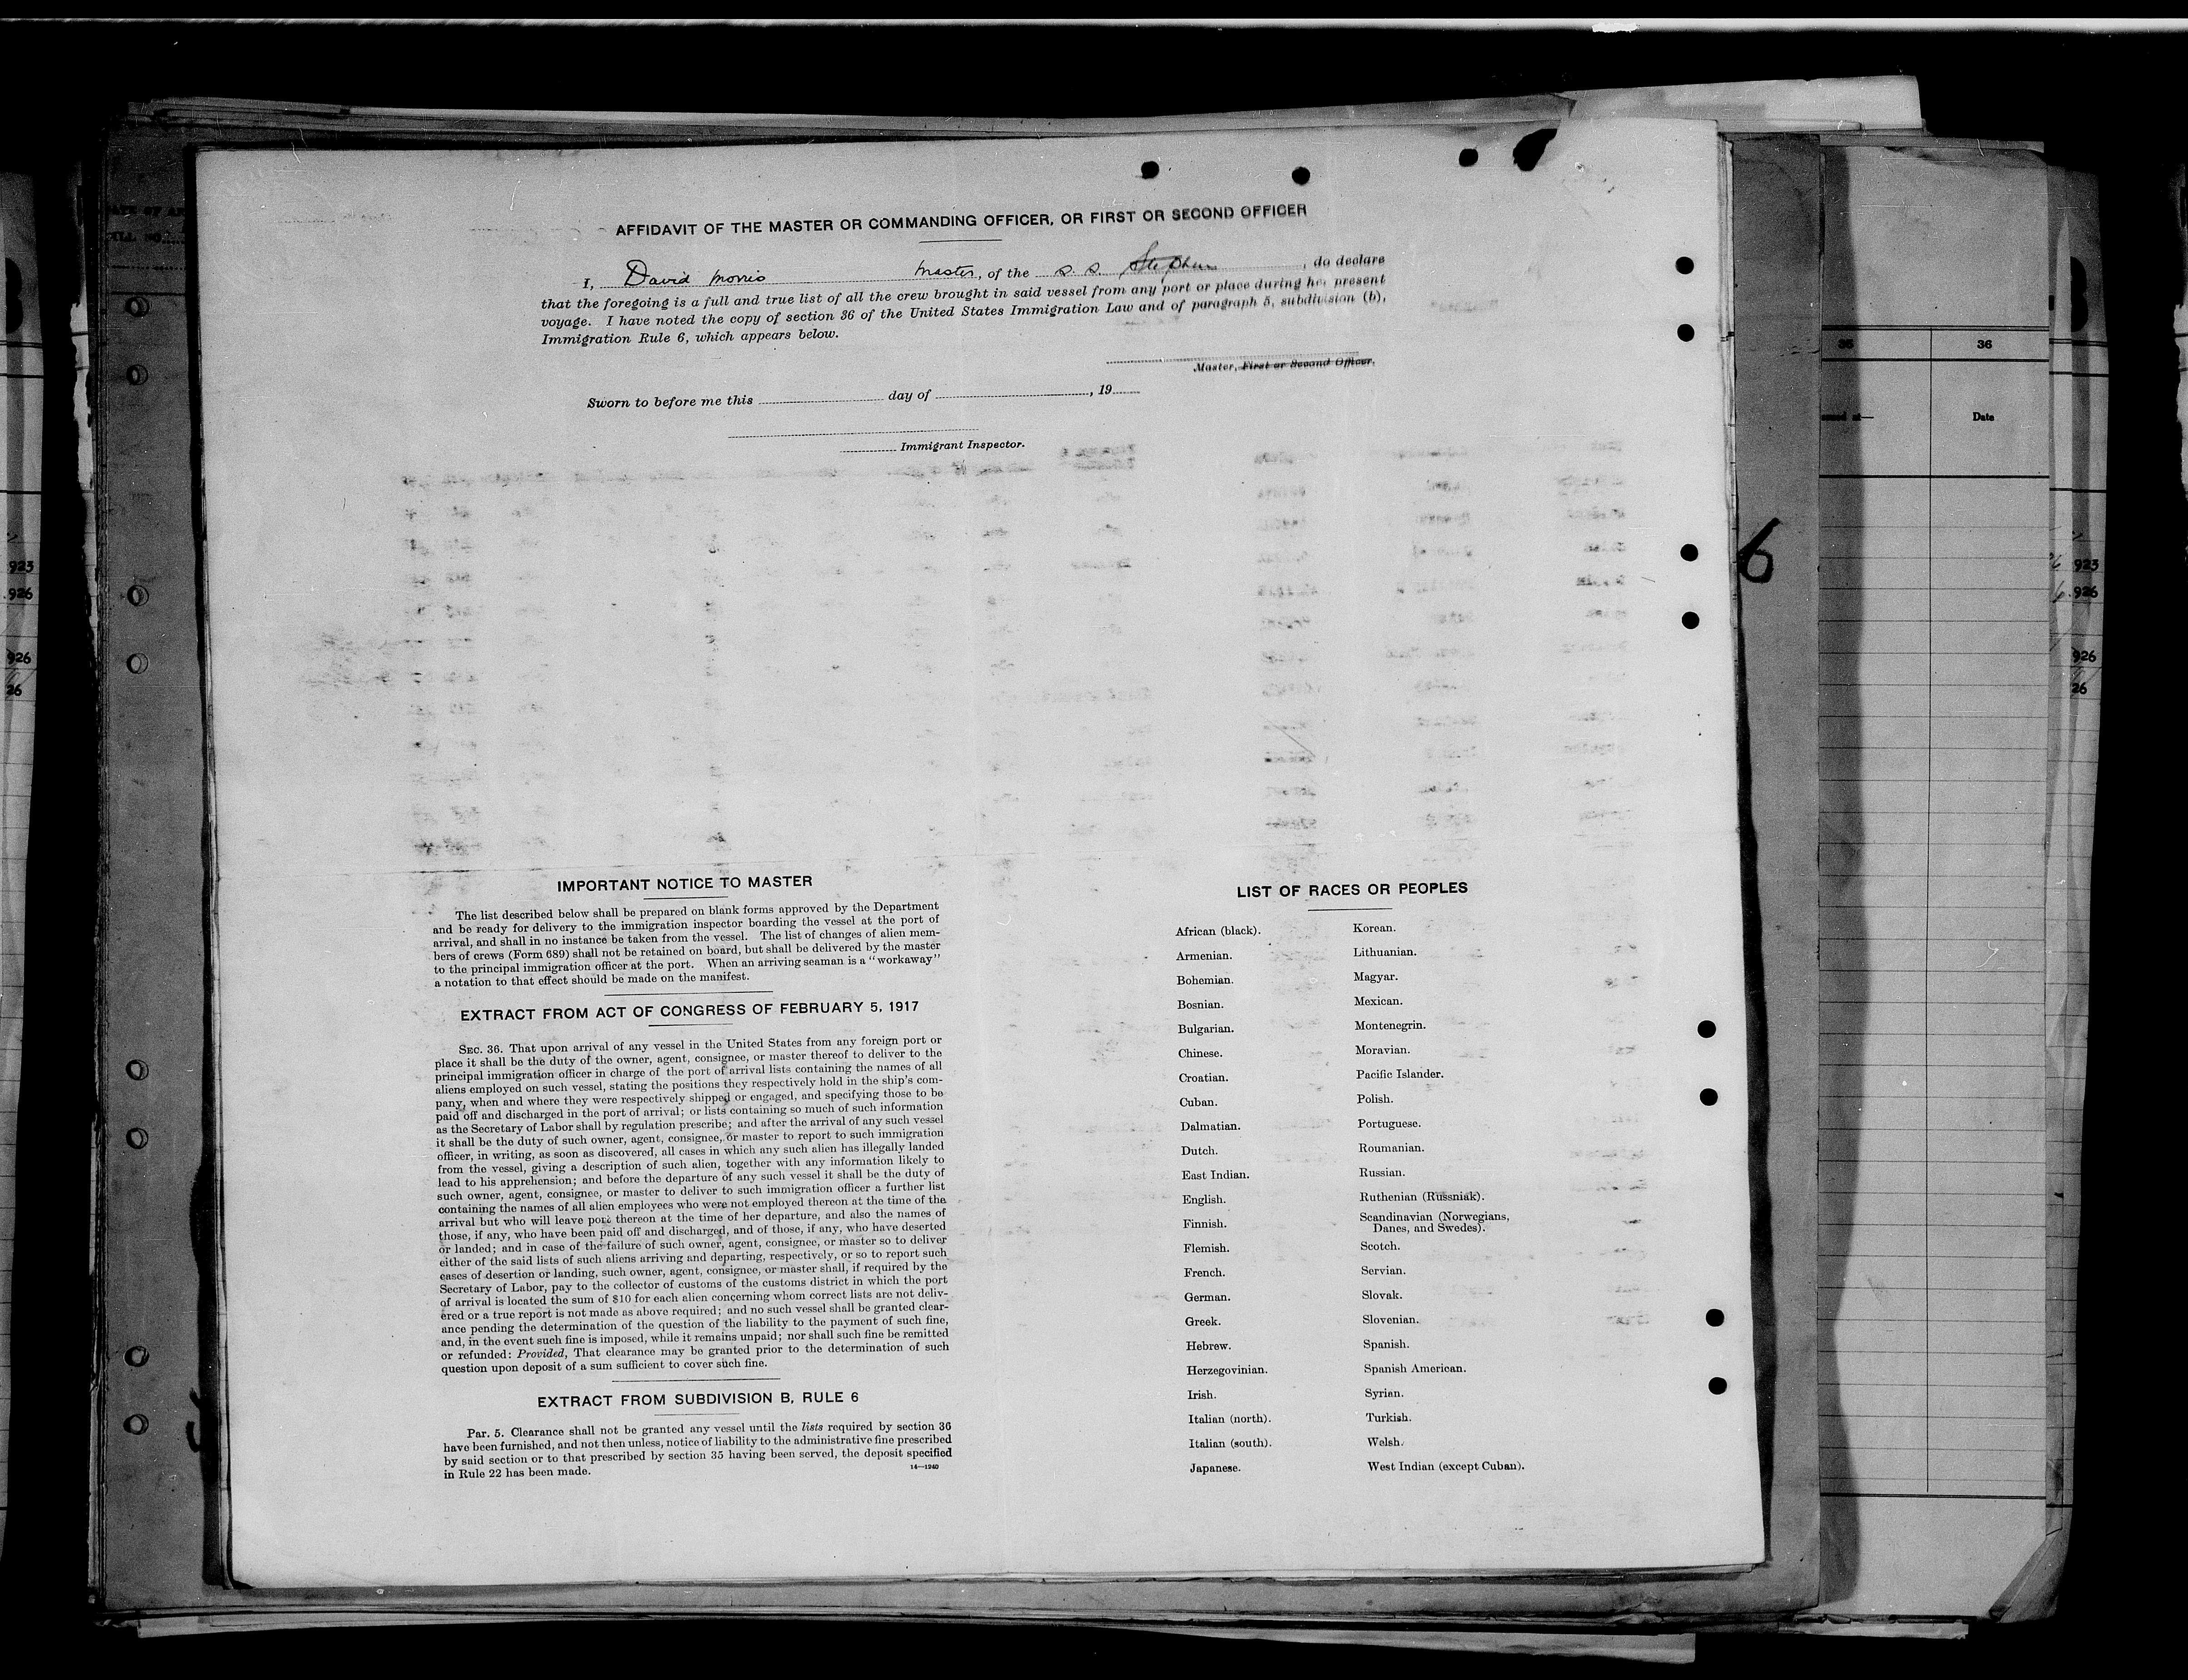 AFFIDAVIT OF THE MASTER OR COMMANDING OFFICER, OR FIRST OR SECOND OFFICER
I, David Morris Master, of the S. S. Stephen, do declare
that the foregoing is a full and true list of all the crew brought in said vessel from any port or place during her present
voyage. I have noted the copy of section 36 of the United States Immigration Law and of paragraph 5, subdivision (b),
Immigration Rule 6, which appears below.
Master, First or Second Officer.
Sworn to before me this day of , 19
Immigrant Inspector.
IMPORTANT NOTICE TO MASTER
The list described below shall be prepared on blank forms approved by the Department
and be ready for delivery to the immigration inspector boarding the vessel at the port of
arrival, and shall in no instance be taken from the vessel. The list of changes of alien mem-
bers of crews (Form 689) shall not be retained on board, but shall be delivered by the master
to the principal immigration officer at the port. When an arriving seaman is a "workaway"
a notation to that effect should be made on the manifest.
EXTRACT FROM ACT OF CONGRESS OF FEBRUARY 5, 1917
SEC. 36. That upon arrival of any vessel in the United States from any foreign port or
place it shall be the duty of the owner, agent, consignee, or master thereof to deliver to the
principal immigration officer in charge of the port of arrival lists containing the names of all
aliens employed on such vessel, stating the positions they respectively hold in the ship's com-
pany, when and where they were respectively shipped or engaged, and specifying those to be
paid off and discharged in the port of arrival; or lists containing so much of such information
as the Secretary of Labor shall by regulation prescribe; and after the arrival of any such vessel
it shall be the duty of such owner, agent, consignee, or master to report to such immigration
officer, in writing, as soon as discovered, all cases in which any such alien has illegally landed
from the vessel, giving a description of such alien, together with any information likely to
lead to his apprehension; and before the departure of any such vessel it shall be the duty of
such owner, agent, consignee, or master to deliver to such immigration officer a further list
containing the names of all alien employees who were not employed thereon at the time of the
arrival but who will leave port thereon at the time of her departure, and also the names of
those, if any, who have been paid off and discharged, and of those, if any, who have deserted
or landed; and in case of the failure of such owner, agent, consignee, or master so to deliver
either of the said lists of such aliens arriving and departing, respectively, or so to report such
cases of desertion or landing, such owner, agent, consignee, or master shall, if required by the
Secretary of Labor, pay to the collector of customs of the customs district in which the port
of arrival is located the sum of $10 for each alien concerning whom correct lists are not deliv-
ered or a true report is not made as above required; and no such vessel shall be granted clear-
ance pending the determination of the question of the liability to the payment of such fine,
and, in the event such fine is imposed, while it remains unpaid; nor shall such fine be remitted
or refunded: Provided, That clearance may be granted prior to the determination of such
question upon deposit of a sum sufficient to cover such fine.
EXTRACT FROM SUBDIVISION B, RULE 6
Par. 5. Clearance shall not be granted any vessel until the lists required by section 36
have been furnished, and not then unless, notice of liability to the administrative fine prescribed
by said section or to that prescribed by section 35 having been served, the deposit specified
in Rule 22 has been made.
14—1240
LIST OF RACES OR PEOPLES
African (black).
Armenian.
Bohemian.
Bosnian.
Bulgarian.
Chinese.
Croatian.
Cuban.
Dalmatian.
Dutch.
East Indian.
English.
Finnish.
Flemish.
French.
German.
Greek.
Hebrew.
Herzegovinian.
Irish.
Italian (north).
Italian (south).
Japanese.
Korean.
Lithuanian.
Magyar.
Mexican.
Montenegrin.
Moravian.
Pacific Islander.
Polish.
Portuguese.
Roumanian.
Russian.
Ruthenian (Russniak).
Scandinavian (Norwegians,
Danes, and Swedes).
Scotch.
Servian.
Slovak.
Slovenian.
Spanish.
Spanish American.
Syrian.
Turkish.
Welsh.
West Indian (except Cuban).
6
36
Date
923
926
926
26
923
926
926
26